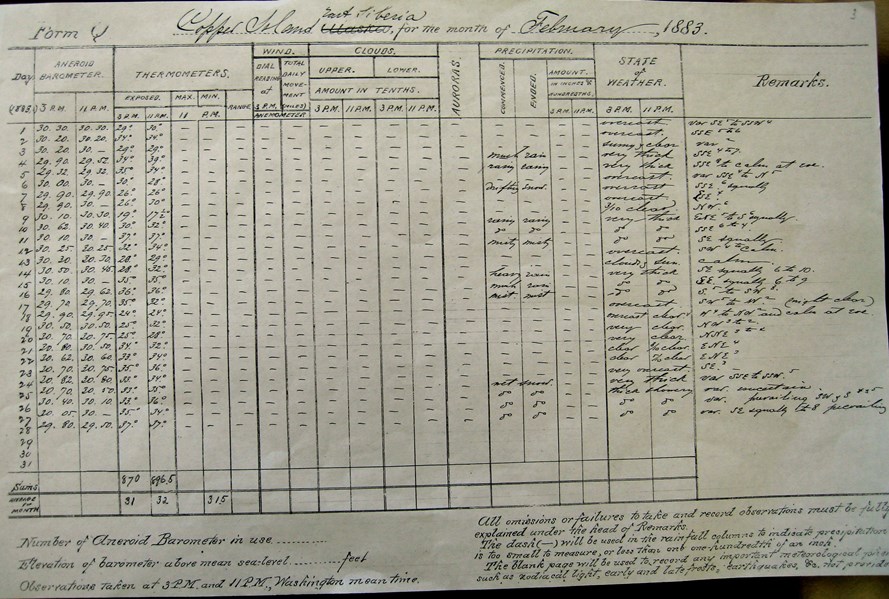 3
Form
Copper Island East Siberia Alaska, for the month of February, 1883.
WIND. CLOUDS. PRECIPITATION.
ANEROID BAROMETER. THERMOMETERS. DIAL READING at 3 P.M. TOTAL DAILY MOVEMENT (MILES) UPPER. LOWER. AURORAS. COMMENCED. ENDED. AMOUNT. IN INCHES & HUNDREDTHS. STATE of WEATHER. Remarks.
Day EXPOSED. MAX. MIN. RANGE ANEMOMETER AMOUNT IN TENTHS.
(1883) 3 P.M. 11 P.M. 3 P.M. 11 P.M. 11 P.M. 3 P.M. 11 P.M. 3 P.M. 11 P.M. 3 P.M. 11 P.M. 3 P.M. 11 P.M.
1 30. 30. 30. 30. 29° 30° overcast
2 30. 20. 30. 20. 34° 34° overcast. SSE
3 30. 20. 30. – 29° 29° sunny & clear var
4 29. 90. 29. 52 34° 39° much rain very thick SSE
5 29. 32. 29. 32. 35° 34° rainy rainy very thick SSE to calm at
6 30. 00. 30. – 32° 28° overcast var SSE to N
7 29. 90. 29. 90. 26° 26° drifting snow. overcast SSE squally
8 29. 90. 30. – 26° 29° overcast
9 30. 10. 30. 30. 19° clear N.W.
10 30. 62. 30. 40. 30° 32° rainy rainy very thick squally
11 30. 10. 30. – 37° 37° do do do do SSE
12 30. 25 30. 25 32° 34° misty misty do do SE squally
13 30. 20 30. 30. 28° 29° overcast. SW to Calm.
14 30. 50. 30. 45. 28° 32° cloudy sun. calm.
15 30. 10. 30. – 35° 35° heavy rain very thick SE squally 6 to 10.
16 29. 80 29. 62 36° 36° much rain do do squally 6 to 9
17 29. 70 29. 70. 35° 32° mist mist do do S. to SW
18 29. 90. 29. 95. 24° 24° overcast SW to W (night clear)
19 30. 50 30. 50. 25° 32° overcast clear W to NW and calm at
20 30. 70 30. 75. 25° 28° very clear. NW to
21 30. 80 30. 50. 34° 32° very clear NNE to
22 30. 62 30. 60. 33° 34° clear clear. ENE
23 30. 70. 30. 75. 35° 36° clear clear ENE
24 30. 82 30. 80 33° 34° very overcast. SE
25 30. 70 30. 50 33° 35° wet snow. very thick var SSE to SSW.
26 30. 40. 30. 10 33° 36° do do thick showery var. uncertain
27 30. 05 30. – 35° 34° do do do do var. prevailing SW & S
28 29. 80. 29. 50. 37° 37° do do do do var. SE squally to 8 prevailing
29
30
31
Sums 870 896.5
AVERAGE OF MONTH 31 32 31.5
Number of Aneroid Barometer in use
Elevation of barometer above mean sea-level feet
Observations taken at 3 P.M. and 11 P.M., Washington mean time.
All omissions or failures to take and record observations must be fully
explained under the head of Remarks.
The dash (–) will be used in the rainfall columns to indicate precipitation
is too small to measure, or less than one one-hundredth of an inch.
The blank page will be used to record any important meteorological
such as zodiacal light, early and late frosts, earthquakes, &c. not